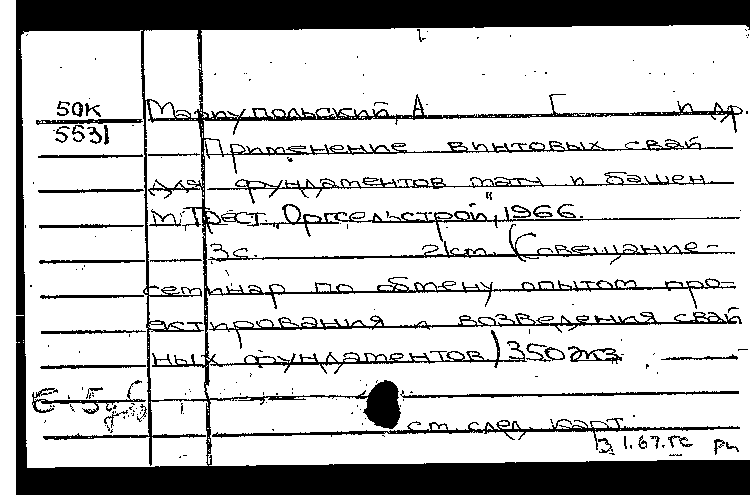 50К Мариупольский, А Г и др.
5531
Применение винтовых свай
для фундаментов мачт и башен.
М., Трест „Оргсельстрой", 1966.
3с. 2/ст. (Совещание-
семинар по обмену опытом про-
ектирования и возведения свай
ных фундаментов) 350 экз.
ст. след. карт.
1.67. ГС